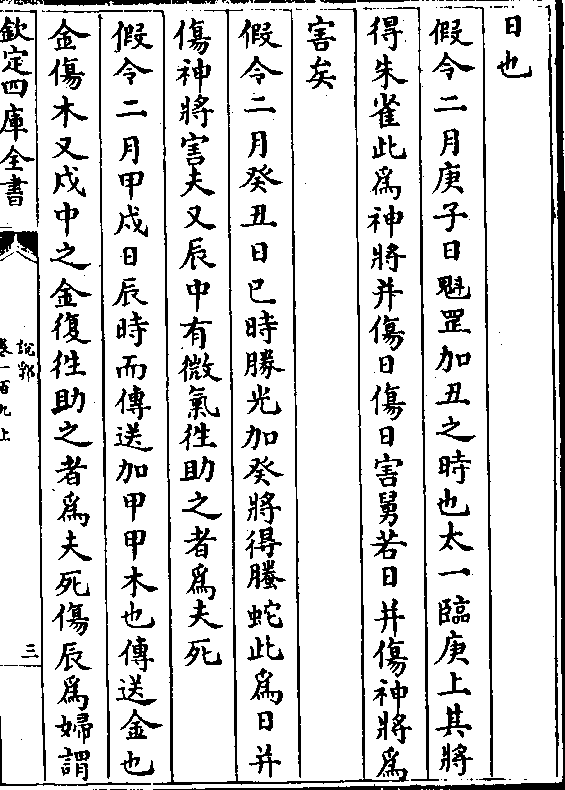 日也
假令二月庚子日魁罡加丑之時也太一臨庚上其將
得朱雀此為神將并傷日傷日害舅若日并傷神將為
害矣
假令二月癸丑日巳時勝光加癸將得螣蛇此為日并
傷神將害夫又辰中有微氣徃助之者為夫死
假令二月甲戍日辰時而傳送加甲甲木也傳送金也
金傷木又戍中之金復徃助之者為夫死傷辰為婦謂
欽定四庫全書
說郛
卷一百九上
三